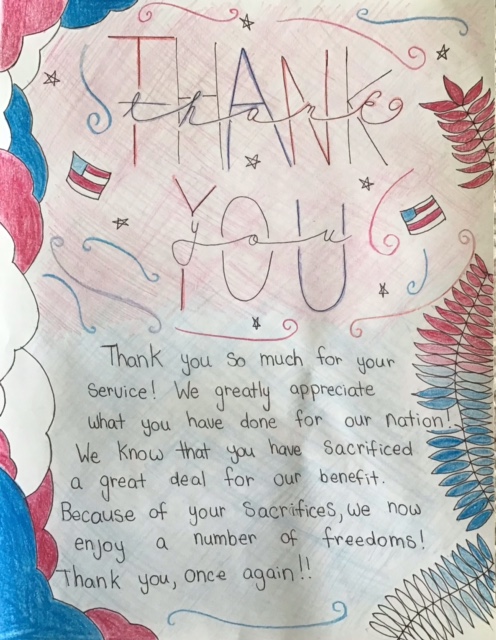 THANK
thank
YOU
you
Thank you so much for your
service! We greatly appreciate
what you have done for our nation!
We know that you have sacrificed
a great deal for our benefit.
Because of your sacrifices, we now
enjoy a number of freedoms!
Thank you, once again!!